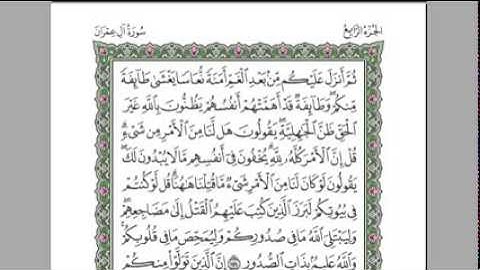 سُورَةُ آلِ عِمْرَانَ
الجُزْءُ الرَّابِعُ
ثُمَّ أَنزَلَ عَلَيْكُم مِّنۢ بَعْدِ ٱلْغَمِّ أَمَنَةً نُّعَاسًا يَغْشَىٰ طَآئِفَةً
مِّنكُمْ ۖ وَطَآئِفَةٌ قَدْ أَهَمَّتْهُمْ أَنفُسُهُمْ يَظُنُّونَ بِٱللَّهِ غَيْرَ
ٱلْحَقِّ ظَنَّ ٱلْجَٰهِلِيَّةِ ۖ يَقُولُونَ هَل لَّنَا مِنَ ٱلْأَمْرِ مِن شَىْءٍ ۗ
قُلْ إِنَّ ٱلْأَمْرَ كُلَّهُۥ لِلَّهِ ۗ يُخْفُونَ فِىٓ أَنفُسِهِم مَّا لَا يُبْدُونَ لَكَ ۖ
يَقُولُونَ لَوْ كَانَ لَنَا مِنَ ٱلْأَمْرِ شَىْءٌ مَّا قُتِلْنَا هَٰهُنَا ۗ قُل لَّوْ كُنتُمْ
فِى بُيُوتِكُمْ لَبَرَزَ ٱلَّذِينَ كُتِبَ عَلَيْهِمُ ٱلْقَتْلُ إِلَىٰ مَضَاجِعِهِمْ ۖ
وَلِيَبْتَلِىَ ٱللَّهُ مَا فِى صُدُورِكُمْ وَلِيُمَحِّصَ مَا فِى قُلُوبِكُمْ ۗ
وَٱللَّهُ عَلِيمٌۢ بِذَاتِ ٱلصُّدُورِ ١٥٤ إِنَّ ٱلَّذِينَ تَوَلَّوْا۟ مِنكُمْ